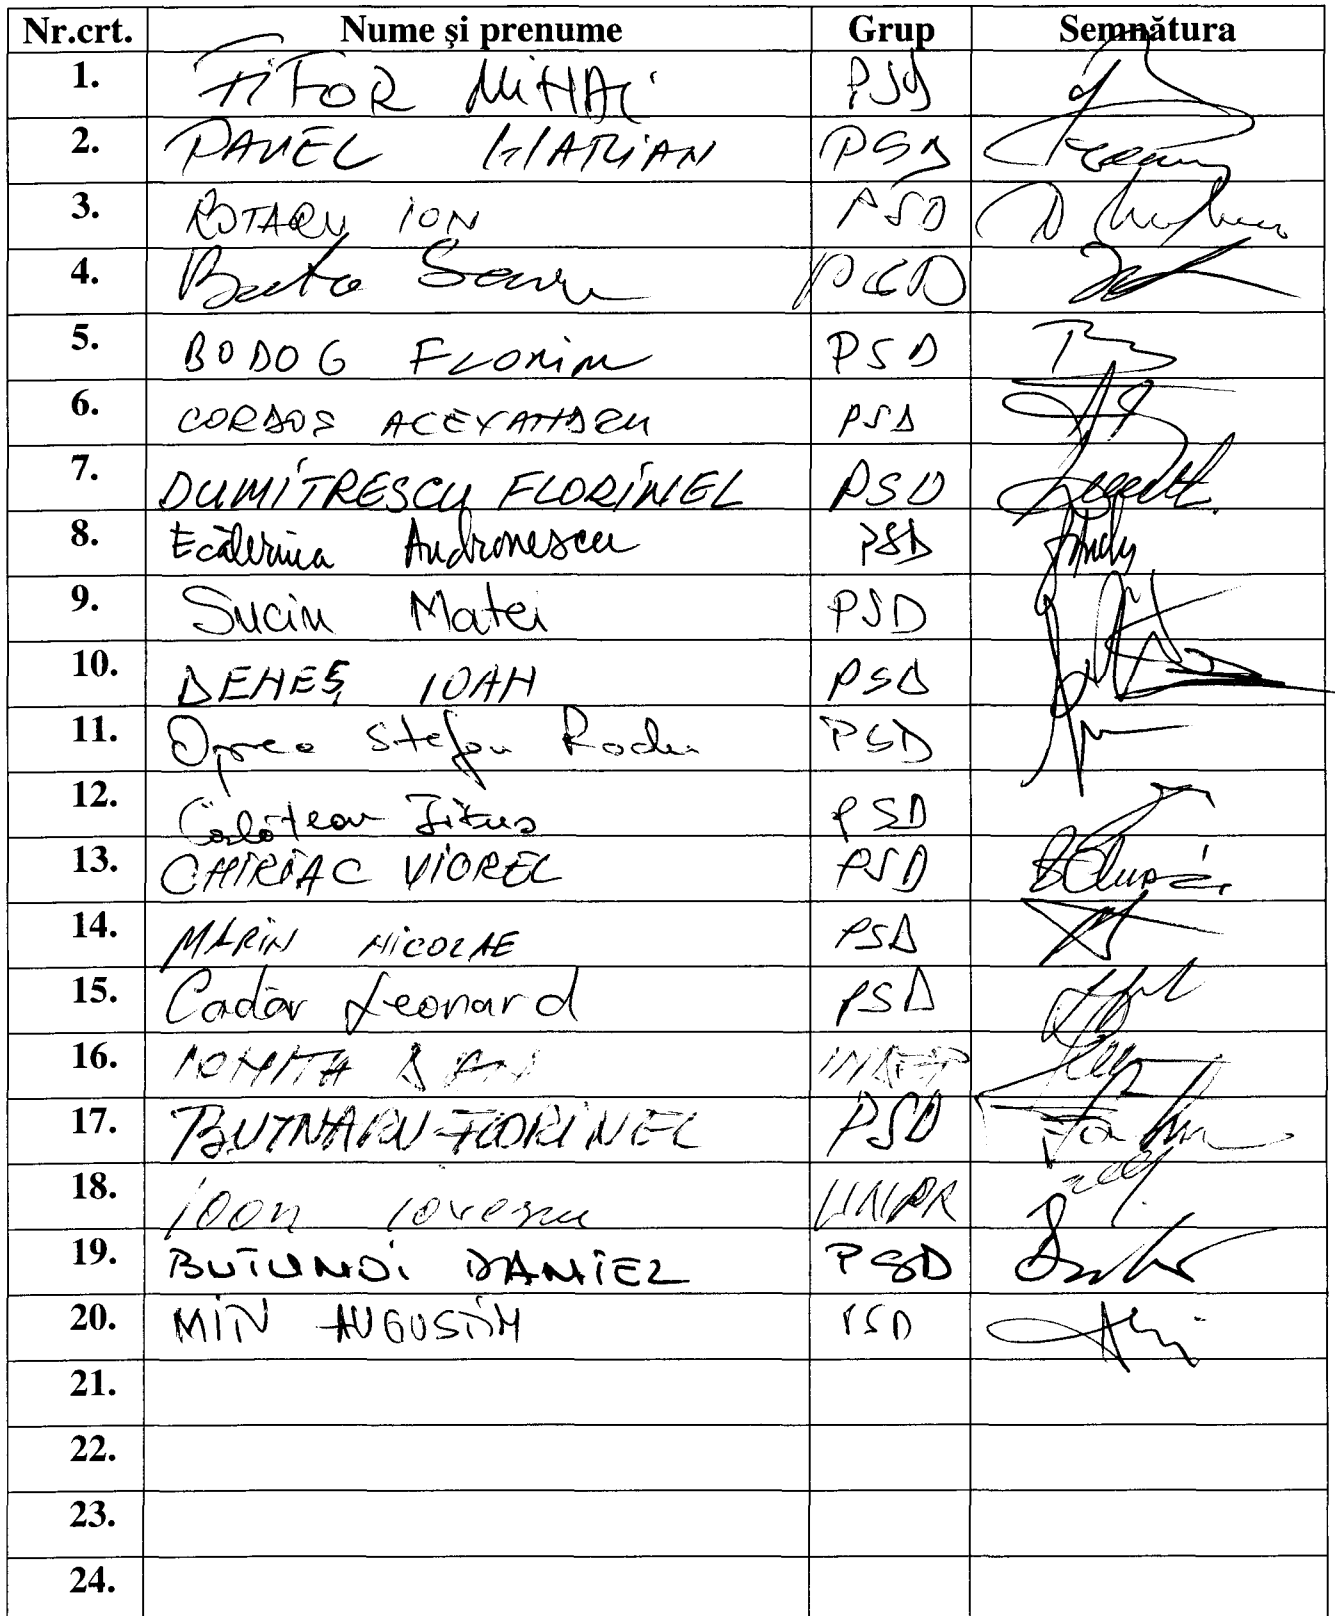 Nr.crt. Nume şi prenume Grup Semnătura
1. FIFOR MIHAI PSD
2. PAVEL MARIAN PSD
3. ROTARU ION PSD
4. PSD
5. BODOG FLORIN PSD
6. CORDOȘ ALEXANDRU PSD
7. DUMITRESCU FLORINEL PSD
8. Ecaterina Andronescu PSD
9. Suciu Matei PSD
10. DENEȘ IOAN PSD
11. Oprea Stefan Radu PSD
12. Titus PSD
13. CHIRIAC VIOREL PSD
14. MARIN NICOLAE PSD
15. Cadăr Leonard PSD
16. IONITA DAN
17. BUTNARU FLORINEL PSD
18. Ioan Iovescu UNPR
19. BUTUNOI DANIEL PSD
20. MIN AUGUSTIN PSD
21.
22.
23.
24.